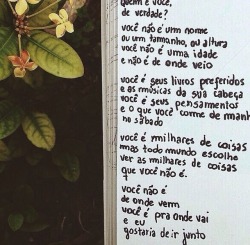 quem é você,
de verdade?
você não é um nome
ou um tamanho, ou altura
você não é uma idade
e não é de onde veio
você é seus livros preferidos
e as músicas da sua cabeça
você é seus pensamentos
e o que você come de manhã
no sábado
você é milhares de coisas
mas todo mundo escolhe
ver as milhares de coisas
que você não é.
você não é
de onde vem
você é pra onde vai
e eu
gostaria de ir junto